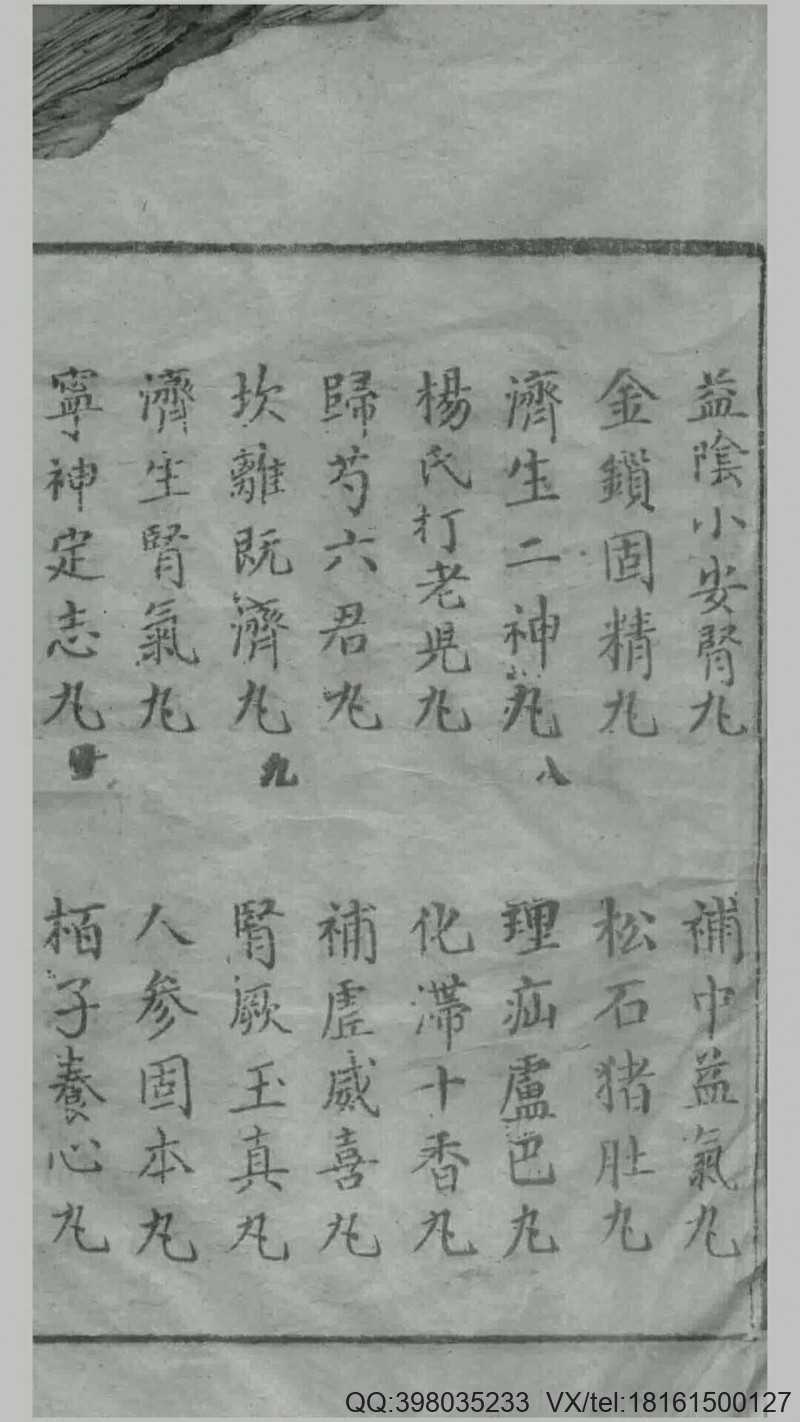 益陰小安腎丸
補中益氣丸
金鎖固精丸
松石猪肚丸
濟生二神丸 八
理疝盧巴丸
楊氏打老児丸
化滯十香丸
歸芍六君丸
補虛威喜丸
坎離既濟丸 九
腎厥玉真丸
濟生腎氣丸
人參固本丸
寧神定志丸
栢子養心丸
QQ:398035233 VX/tel:18161500127